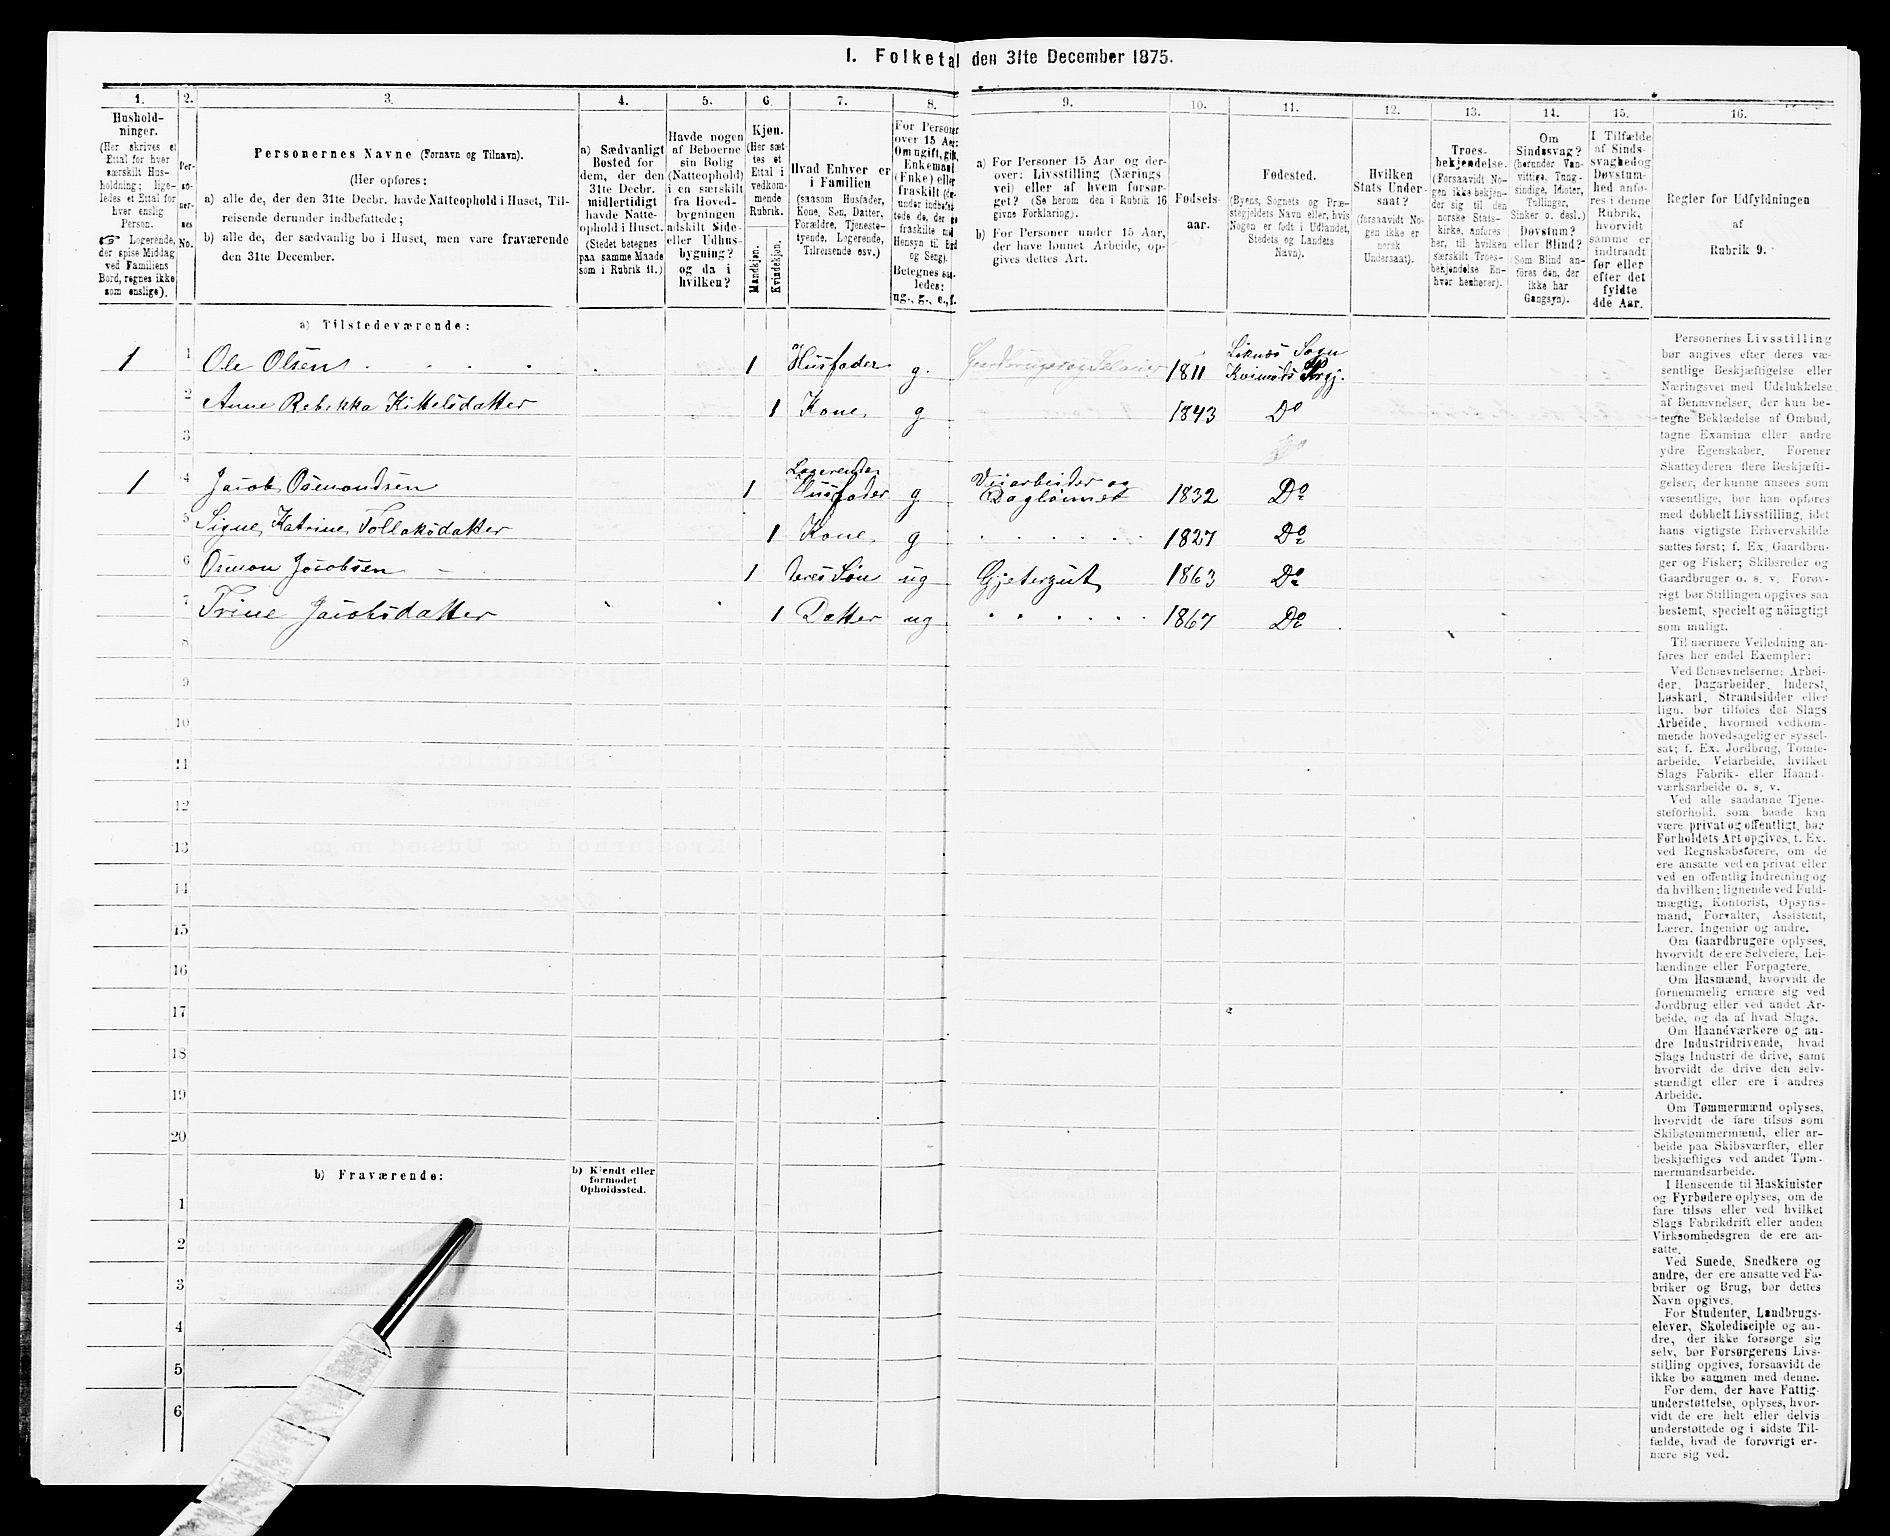 I. Folketal den 31te December 1875.
1.
2.
3.
4.
5.
6.
7.
8.
9.
10.
11.
12.
13.
14.
15.
16.
Hushold-
ninger.
(Her skrives et
Ettal for hver
særskilt Hus-
holdning; lige-
ledes et Ettal for
hver enslig
Person.
☞ Logerende,
der spise Middag
ved Familiens
Bord, regnes ikke
som enslige).
Per-
so-
ner-
nes
No.
Personernes Navne (Fornavn og Tilnavn).
(Her opføres:
a) alle de, der den 31te Decbr. havde Natteophold i Huset, Til-
reisende derunder indbefattede;
b) alle de, der sædvanlig bo i Huset, men vare fraværende
den 31te December.
a) Sædvanligt
Bosted for
dem, der den
31te Decbr.
midlertidigt
havde Natte-
ophold i Huset.
(Stedet betegnes
paa samme Maade
som i Rubrik 11.)
Havde nogen
af Beboerne
sin Bolig
(Natteophold)
i en særskilt
fra Hoved-
bygningen
adskilt Side-
eller Udhus-
bygning?
og da i
hvilken?
Kjøn.
(Her sæt-
tes et
Ettal i
vedkom-
mende
Rubrik.
Mandkjøn.
Kvindekjøn.
Hvad Enhver er
i Familien
(saasom Husfader,
Kone, Søn, Datter,
Forældre, Tjeneste-
tyende, Logerende,
Tilreisende osv.)
For Personer
over 15 Aar:
Om ugift, gift,
Enkemand
(Enke) eller
fraskilt (der-
under indbefat-
tede de, der ere
fraskilte med
Hensyn til Bord
og Seng).
Betegnes saa-
ledes:
ug., g., e., f.
a) For Personer 15 Aar og der-
over: Livsstilling (Nærings-
vei) eller af hvem forsør-
get? (Se herom den i Rubrik 16
givne Forklaring).
b) For Personer under 15 Aar,
der have lønnet Arbeide, op-
gives dettes Art.
Fødsels-
aar.
Fødested.
(Byens, Sognets og Præ-
stegjeldets Navn eller, hvis
Nogen er født i Udlandet,
Stedets og Landets
Navn).
Hvilken
Stats Under-
saat?
(forsaavidt No-
gen ikke er
norsk
Undersaat).
Troes-
bekjendelse.
(Forsaavidt No-
gen ikke bekjen-
der sig til den
norske Stats-
kirke, anføres
her, til hvilken
særskilt Troes-
bekjendelse En-
hver henhører).
Om
Sindssvag?
(herunder Van-
vittige, Tung-
sindige, Idioter,
Tullinger,
Sinker o. desl.)
Døvstum?
eller Blind?
(Som Blind an-
føres den, der
ikke har
Gangsyn).
I Tilfælde
af Sinds-
svaghed og
Døvstum-
hed anfø-
res i denne
Rubrik,
hvorvidt
samme er
indtraadt
før eller
efter det
fyldte
4de Aar.
Regler for Udfyldningen
af
Rubrik 9.
a) Tilstedeværende:
1 1 Ole Olsen 1 Husfader g. Gaardbruger og Selveier 1811 Liknæs Sogn
Kvinesd. Prgj.
2 Anne Rebekka Kittelsdatter 1 Kone g 1843 Do
3
1 4 Jacob Osmondsen 1 Logerende
Husfader g Veiarbeider og
Daglønnet 1832 Do
5 Signe Katrine Tollaksdatter 1 Kone g 1827 Do
6 Osmon Jacobsen 1 Deres Søn ug Gjetergut 1863 Do
7 Trine Jacobsdatter 1 Datter ug 1867 Do
8
9
10
11
12
13
14
15
16
17
18
19
20
b) Fraværende:
b) Kjendt eller
formodet
Opholdssted.
1
2
3
4
5
6
Personernes Livsstilling
bør angives efter deres væ-
sentlige Beskjæftigelse eller
Næringsvei med Udelukkelse
af Benævnelser, der kun be-
tegne Beklædelse af Ombud,
tagne Examina eller andre
ydre Egenskaber. Forener
Skatteyderen flere Beskjæfti-
gelser, der kunne ansees som
væsentlige, bør han opføres
med dobbelt Livsstilling, idet
hans vigtigste Erhvervskilde
sættes først; f. Ex. Gaardbru-
ger og Fisker; Skibsreder og
Gaardbruger o. s. v. Forøv-
rigt bør Stillingen opgives saa
bestemt, specielt og nøiagtigt
som muligt.
Til nærmere Veiledning an-
føres her endel Exempler:
Ved Benævnelserne: Arbei-
der, Dagarbeider, Inderst,
Løskarl, Strandsidder eller
lign. bør tilføies det Slags
Arbeide, hvormed vedkom-
mende hovedsagelig er syssel-
sat; f. Ex. Jordbrug, Tomte-
arbeide, Veiarbeide, hvilket
Slags Fabrik- eller Haand-
værksarbeide o. s. v.
Ved alle saadanne Tjene-
steforhold, som baade kan
være privat og offentligt, bør
Forholdets Art opgives, t. Ex.
ved Regnskabsførere, om de
ere ansatte ved en privat eller
ved en offentlig Indretning og
da hvilken; lignende ved Fuld-
mægtig, Kontorist, Opsyns-
mand, Forvalter, Assistent,
Lærer, Ingeniør og andre.
Om Gaardbrugere oplyses,
hvorvidt de ere Selveiere, Lei-
lændinge eller Forpagtere.
Om Husmænd, hvorvidt de
fornemmelig ernære sig ved
Jordbrug eller ved andet Ar-
beide, og da af hvad Slags.
Om Haandværkere og an-
dre Industridrivende, hvad
Slags Industri de drive, samt
hvorvidt de drive den selv-
stændigt eller ere i andres
Arbeide.
Om Tømmermænd oplyses,
hvorvidt de fare tilsøs som
Skibstømmermænd, eller ar-
beide paa Skibsværfter, eller
beskjæftiges ved andet Tøm-
mermandsarbeide.
I Henseende til Maskinister
og Fyrbødere oplyses, om de
fare tilsøs eller ved hvilket
Slags Fabrikdrift eller anden
Virksomhedsgren de ere an-
satte.
Ved Smede, Snedkere og
andre, der ere ansatte ved Fa-
briker og Brug, bør dettes
Navn opgives.
For Studenter, Landbrugs-
elever, Skoledisciple og an-
dre, der ikke forsørge sig
selv, bør Forsørgerens Livs-
stilling opgives, forsaavidt de
ikke bo sammen med denne.
For dem, der have Fattig-
understøttelse, oplyses, hvor-
vidt de ere helt eller delvis
understøttede og i sidste Til-
fælde, hvad de forøvrigt er-
nære sig ved.